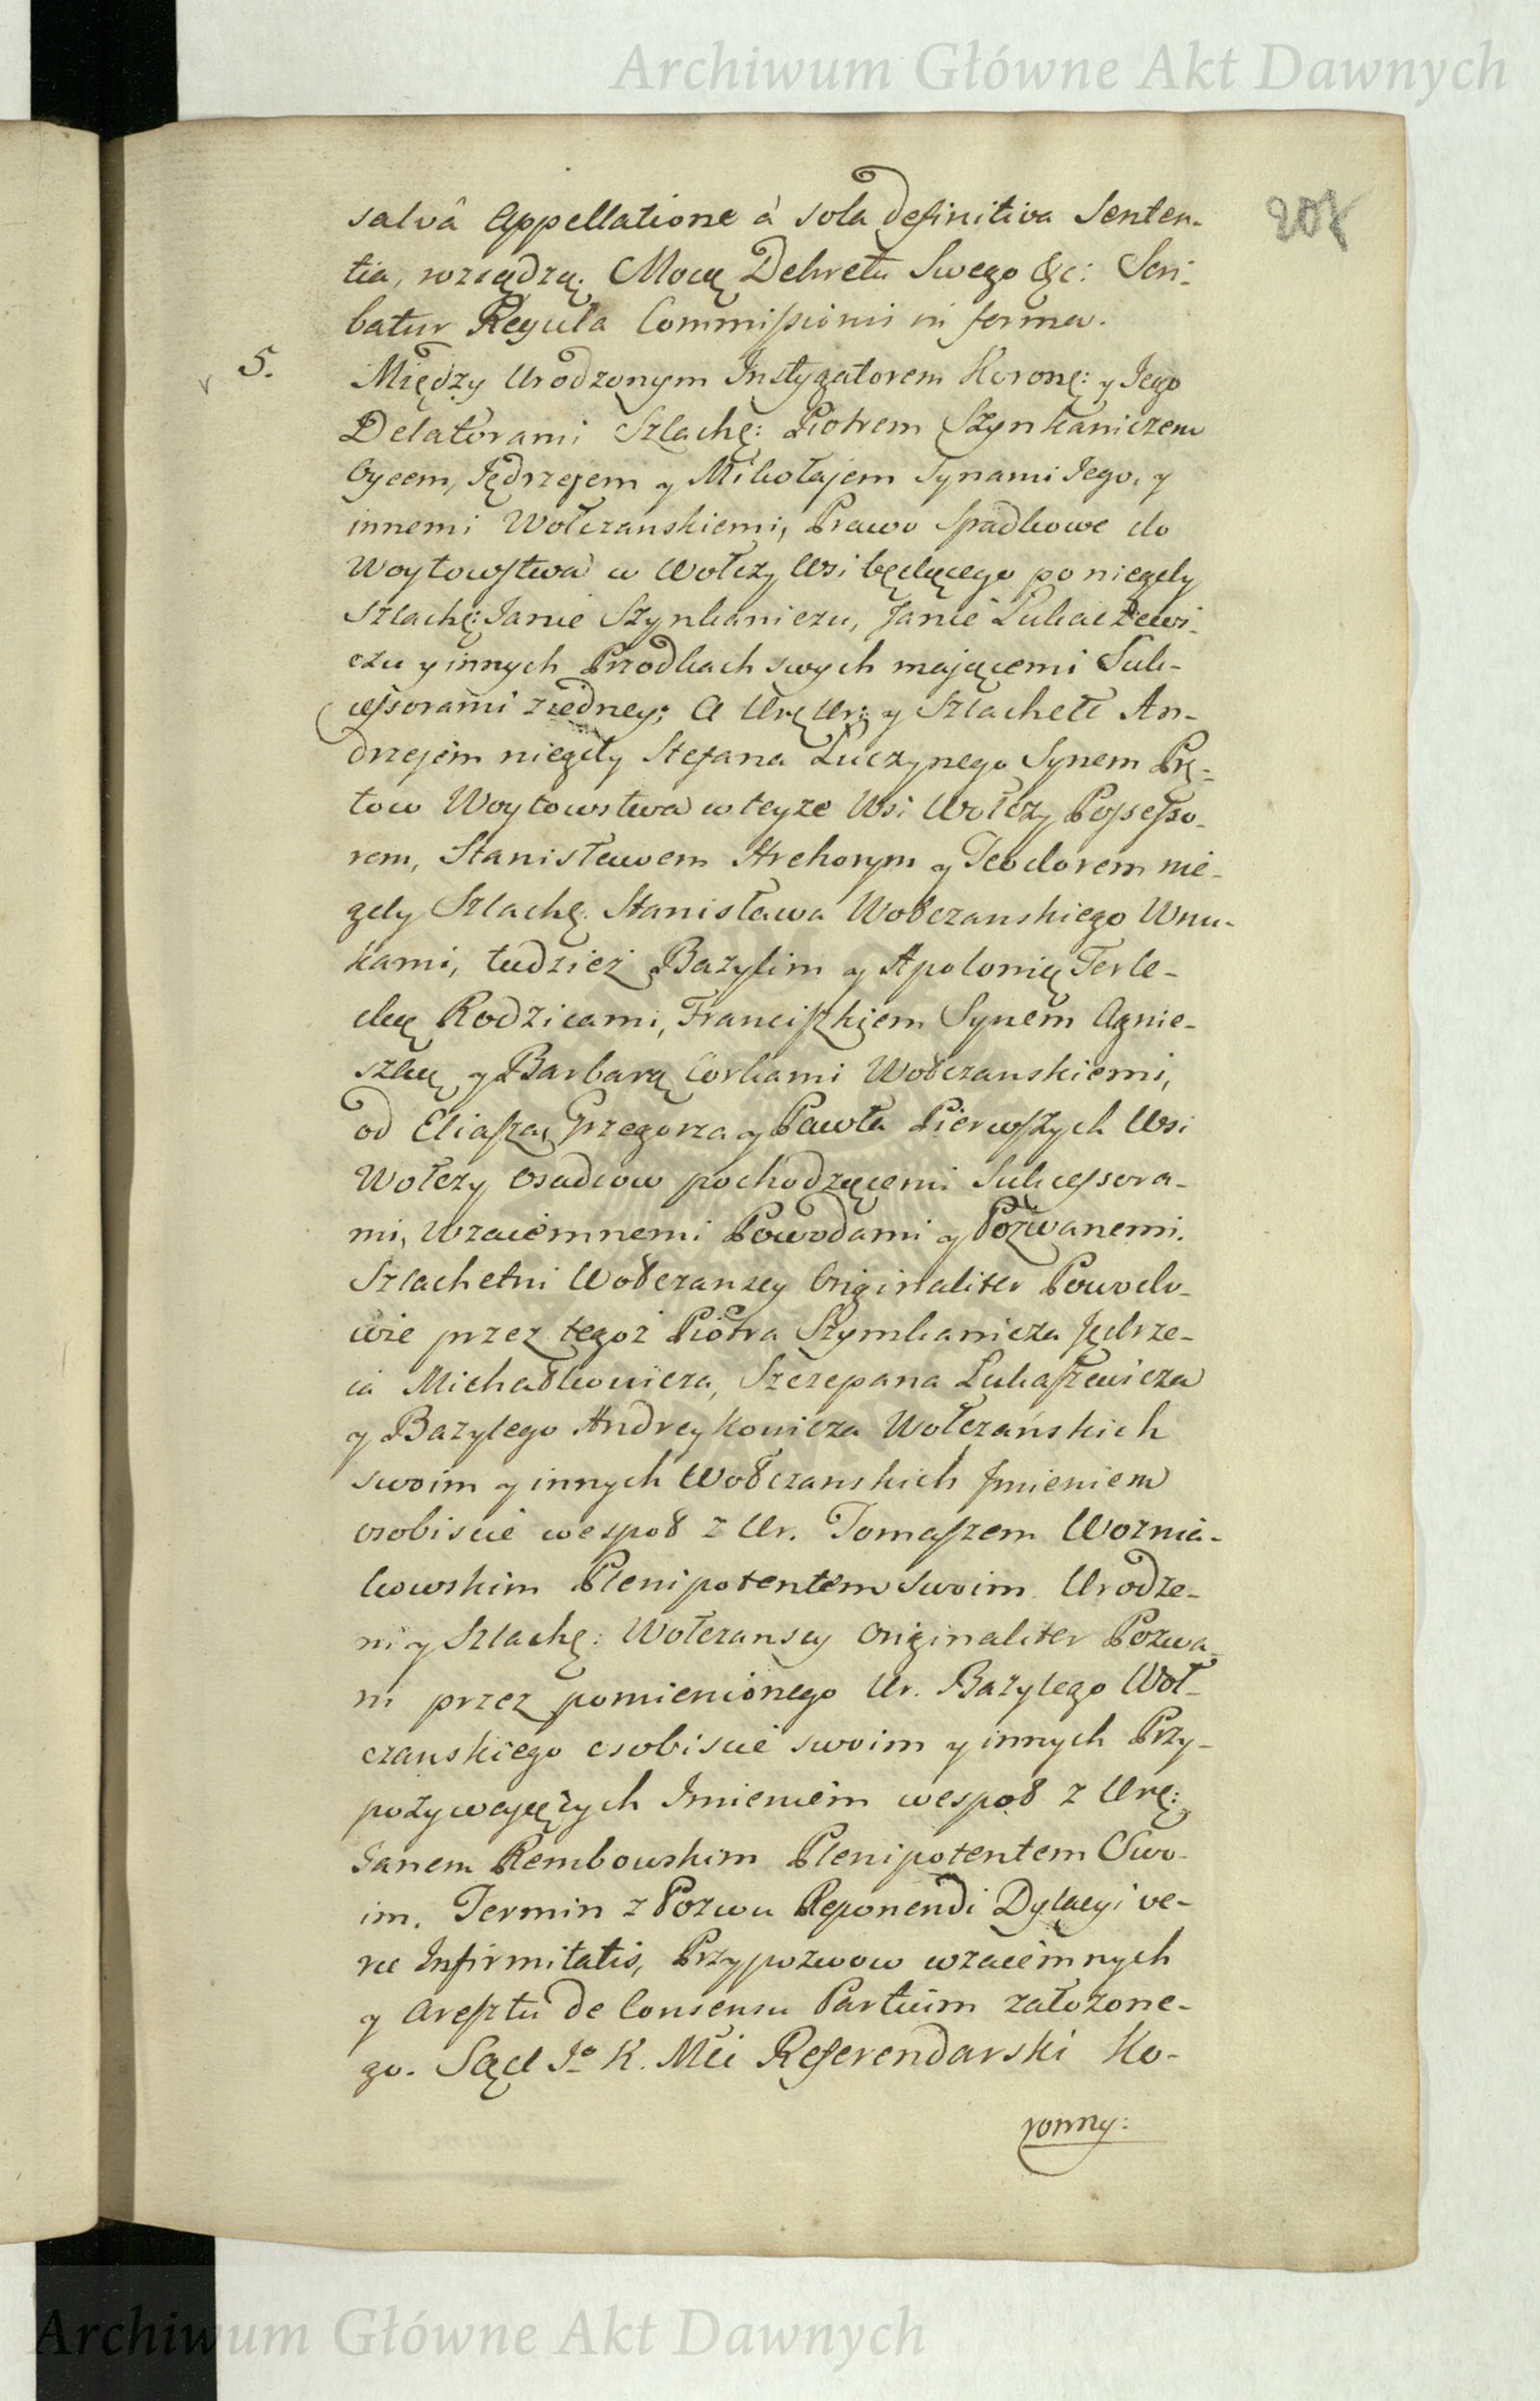 Archiwum Główne Akt Dawnych
207
salvâ Appellatione à sola definitiva Senten-
tia, rozsądzą. Mocą Dekretu Swego &c: Scri-
batur Regula Commissionis in forma.
5. Między Urodzonym Instygatorem Koronę: y Jego
Delatorami Szlachę: Piotrem Szynkaniczem
Oycem, Jędrzejem y Mikołajem Synami Jego, y
innemi Wołczanskiemi, Prawo spadkowe do
Woytowstwa w Wołczy Wsi będącego po niegdy
Szlachę: Janie Szynkaniczu, Janie Lukaczewi-
czu y innych Przodkach swych mającemi Suk-
cessorami z iedney; A Urę Ur: y Szlachetł An-
drzejem niegdy Stefana Luczynego Synem Prę-
tow Woytowstwa w teyze Wsi Wołczy Possesso-
rem, Stanisławem Hrehorym y Teodorem nie-
gdy Szlachę. Stanisława Wołczanskiego Wnu-
kami, tudzież Bazylim y Apolonią Terle-
cką Rodzicami, Franciszkiem Synem Agnie-
szką y Barbarą Corkami Wołczanskiemi,
od Eliasza, Grzegorza y Pawła Pierwszych Wsi
Wołczy Osadcow pochodzącemi Sukcessora-
mi, Wzaiemnemi Powodami y Pozwanemi.
Szlachetni Wołczanscy Originaliter Powodo-
wie przez tegoż Piotra Szymkanicza Jędrze-
ia Michałkowicza, Szczepana Lukaszewicza
y Bazylego Andreykowicza Wołczańskich
swoim y innych Wołczanskich Jmieniem
osobiscie wespoł z Ur. Tomaszem Woznia-
kowskim Plenipotentem swoim. Urodze-
ni y Szlachę: Wołczanscy Originaliter Pozwa-
ni przez pomienionego Ur. Bazylego Woł-
czanskiego osobiscie swoim y innych Przy-
pozywających Jmieniem wespoł z Urę:
Janem Rembowskim Plenipotentem Swo-
im. Termin z Pozwu Reponendi Dylacyi ve-
rae Infirmitatis, Przypozwow wzaiemnych
y Aresztu de Consensu Partium załozone-
go. Sąd Jo K. Mci Referendarski Ko-
ronny:
Archiwum Główne Akt Dawnych